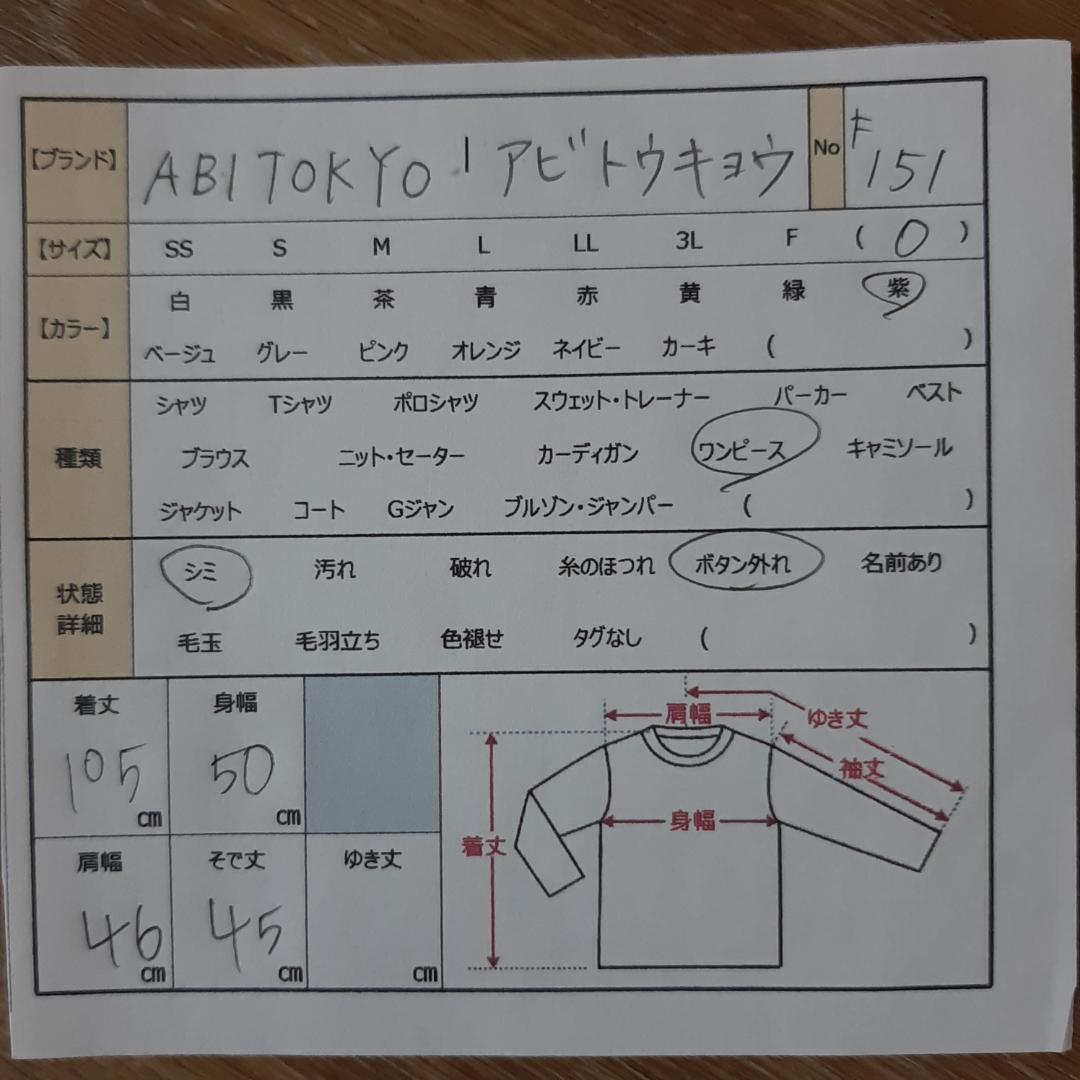 【ブランド】 ABI TOKYO アビトウキョウ No 151
【サイズ】 SS S M L LL 3L F ( 0 )
【カラー】 白 黒 茶 青 赤 黄 緑 紫
ベージュ グレー ピンク オレンジ ネイビー カーキ ( )
種類 シャツ Tシャツ ポロシャツ スウェット・トレーナー パーカー ベスト
ブラウス ニット・セーター カーディガン ワンピース キャミソール
ジャケット コート Gジャン ブルゾン・ジャンパー ( )
状態詳細 シミ 汚れ 破れ 糸のほつれ ボタン外れ 名前あり
毛玉 毛羽立ち 色褪せ タグなし ( )
着丈 身幅
105 cm 50 cm
肩幅 そで丈 ゆき丈
46 cm 45 cm cm
肩幅 ゆき丈
袖丈
身幅
着丈